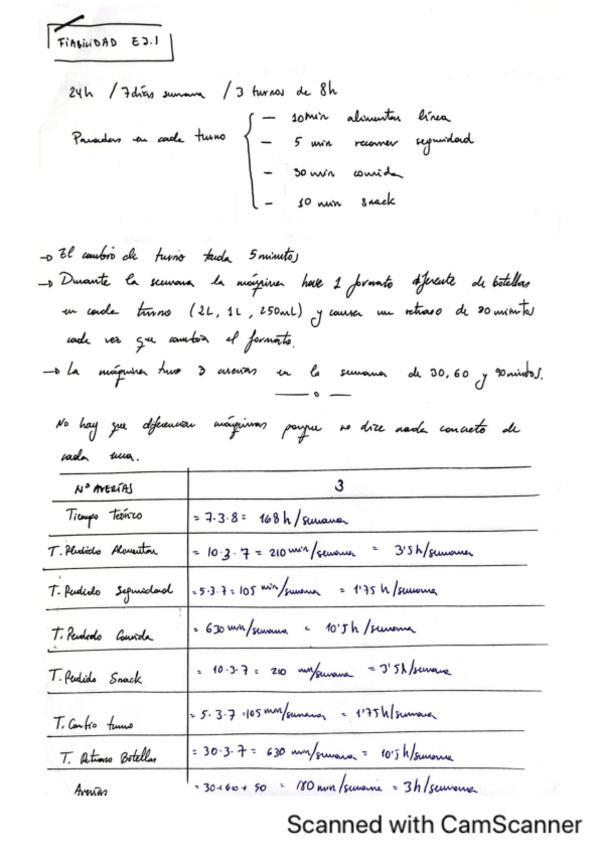 FIABILIDAD EJ.1
24h / 7 días semana / 3 turnos de 8h
Paradas en cada turno
— 10min alimentar línea
— 5 min recorrer seguridad
— 30 min comida
— 10 min snack
→ El cambio de turno tarda 5 minutos
→ Durante la semana la máquina hace 1 formato diferente de botellas
en cada turno (2L, 1L, 250mL) y causa un retraso de 30 minutos
cada vez que cambia el formato.
→ La máquina tuvo 3 averías en la semana de 30, 60 y 90 minutos.
No hay que diferenciar máquinas porque no dice nada concreto de
cada una.
Nº AVERÍAS 3
Tiempo Teórico = 7·3·8 = 168 h/semana
T. Perdido Alimentar = 10·3·7 = 210 min/semana = 3'5 h/semana
T. Perdido Seguridad = 5·3·7 = 105 min/semana = 1'75 h/semana
T. Perdido Comida = 630 min/semana = 10'5 h/semana
T. Perdido Snack = 10·3·7 = 210 min/semana = 3'5 h/semana
T. Cambio turno = 5·3·7 = 105 min/semana = 1'75 h/semana
T. Retraso Botellas = 30·3·7 = 630 min/semana = 10'5 h/semana
Averías = 30+60+90 = 180 min/semana = 3h/semana
Scanned with CamScanner